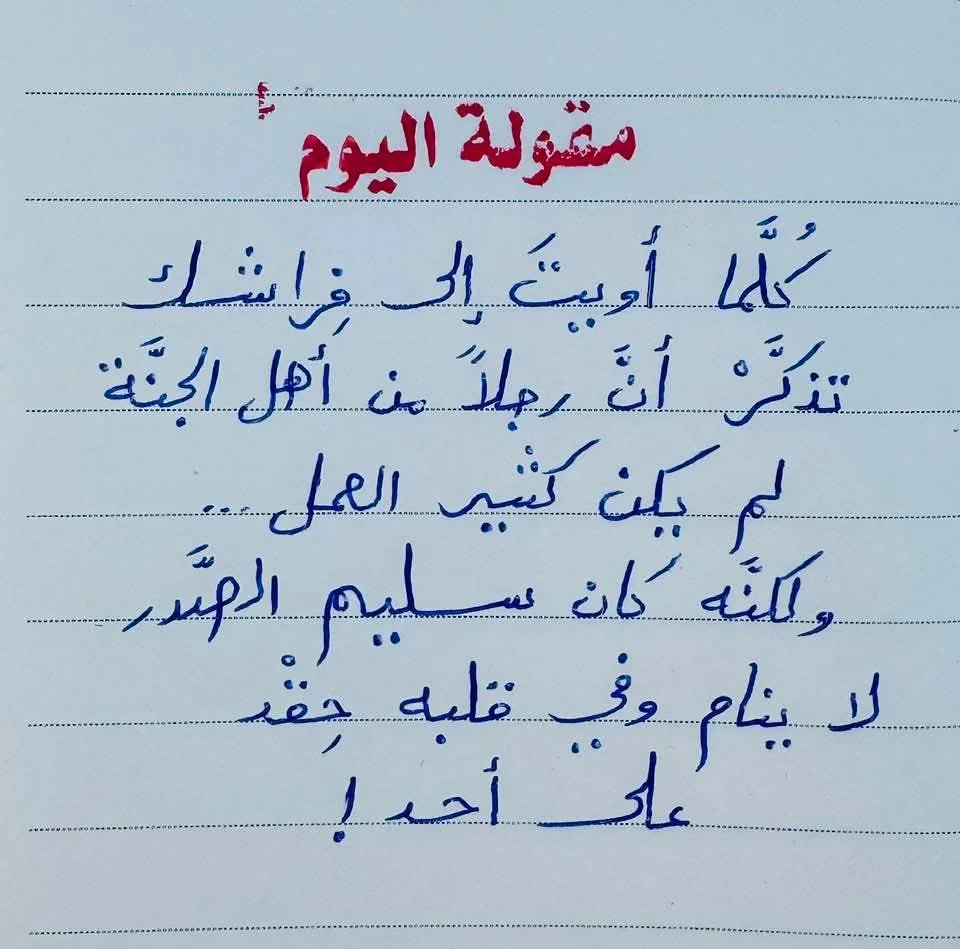 مقولة اليوم
كُلَّما أويتَ إلى فِراشك
تذكَّرْ أنَّ رجلاً من أهل الجنَّة
لم يكن كثير العمل ...
ولكنَّه كان سليم الصَّدر
لا ينام وفي قلبه حِقْد
على أحد !